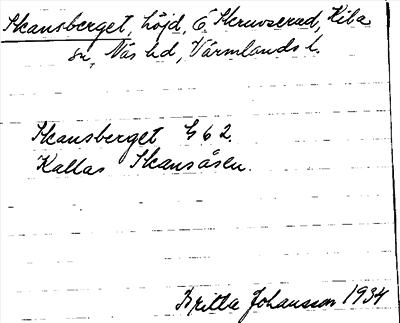 Skansberget, höjd, Ö Skruvserud, Kila
sn, Näs hd, Värmlands l.
Skansberget G 6 2.
Kallas Skansåsen.
Britta Johansson 1934